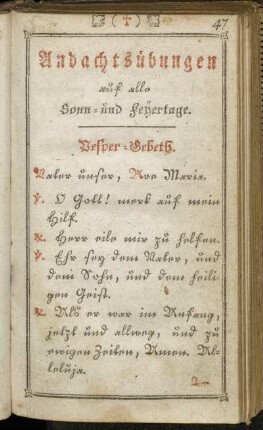 (†)
47
Andachtsübungen
auf alle
Sonn= und Feÿertage.
Vesper=Gebeth.
Vater unser, Ave Maria.
℣. O Gott! merk auf mein
Hilf.
℟. Herr eile mir zu helfen.
℣. Ehr seÿ dem Vater, und
dem Sohn, und dem heili-
gen Geist.
℟. Als er war im Anfang,
jetzt und allweg, und zu
ewigen Zeiten, Amen. Al-
leluja.